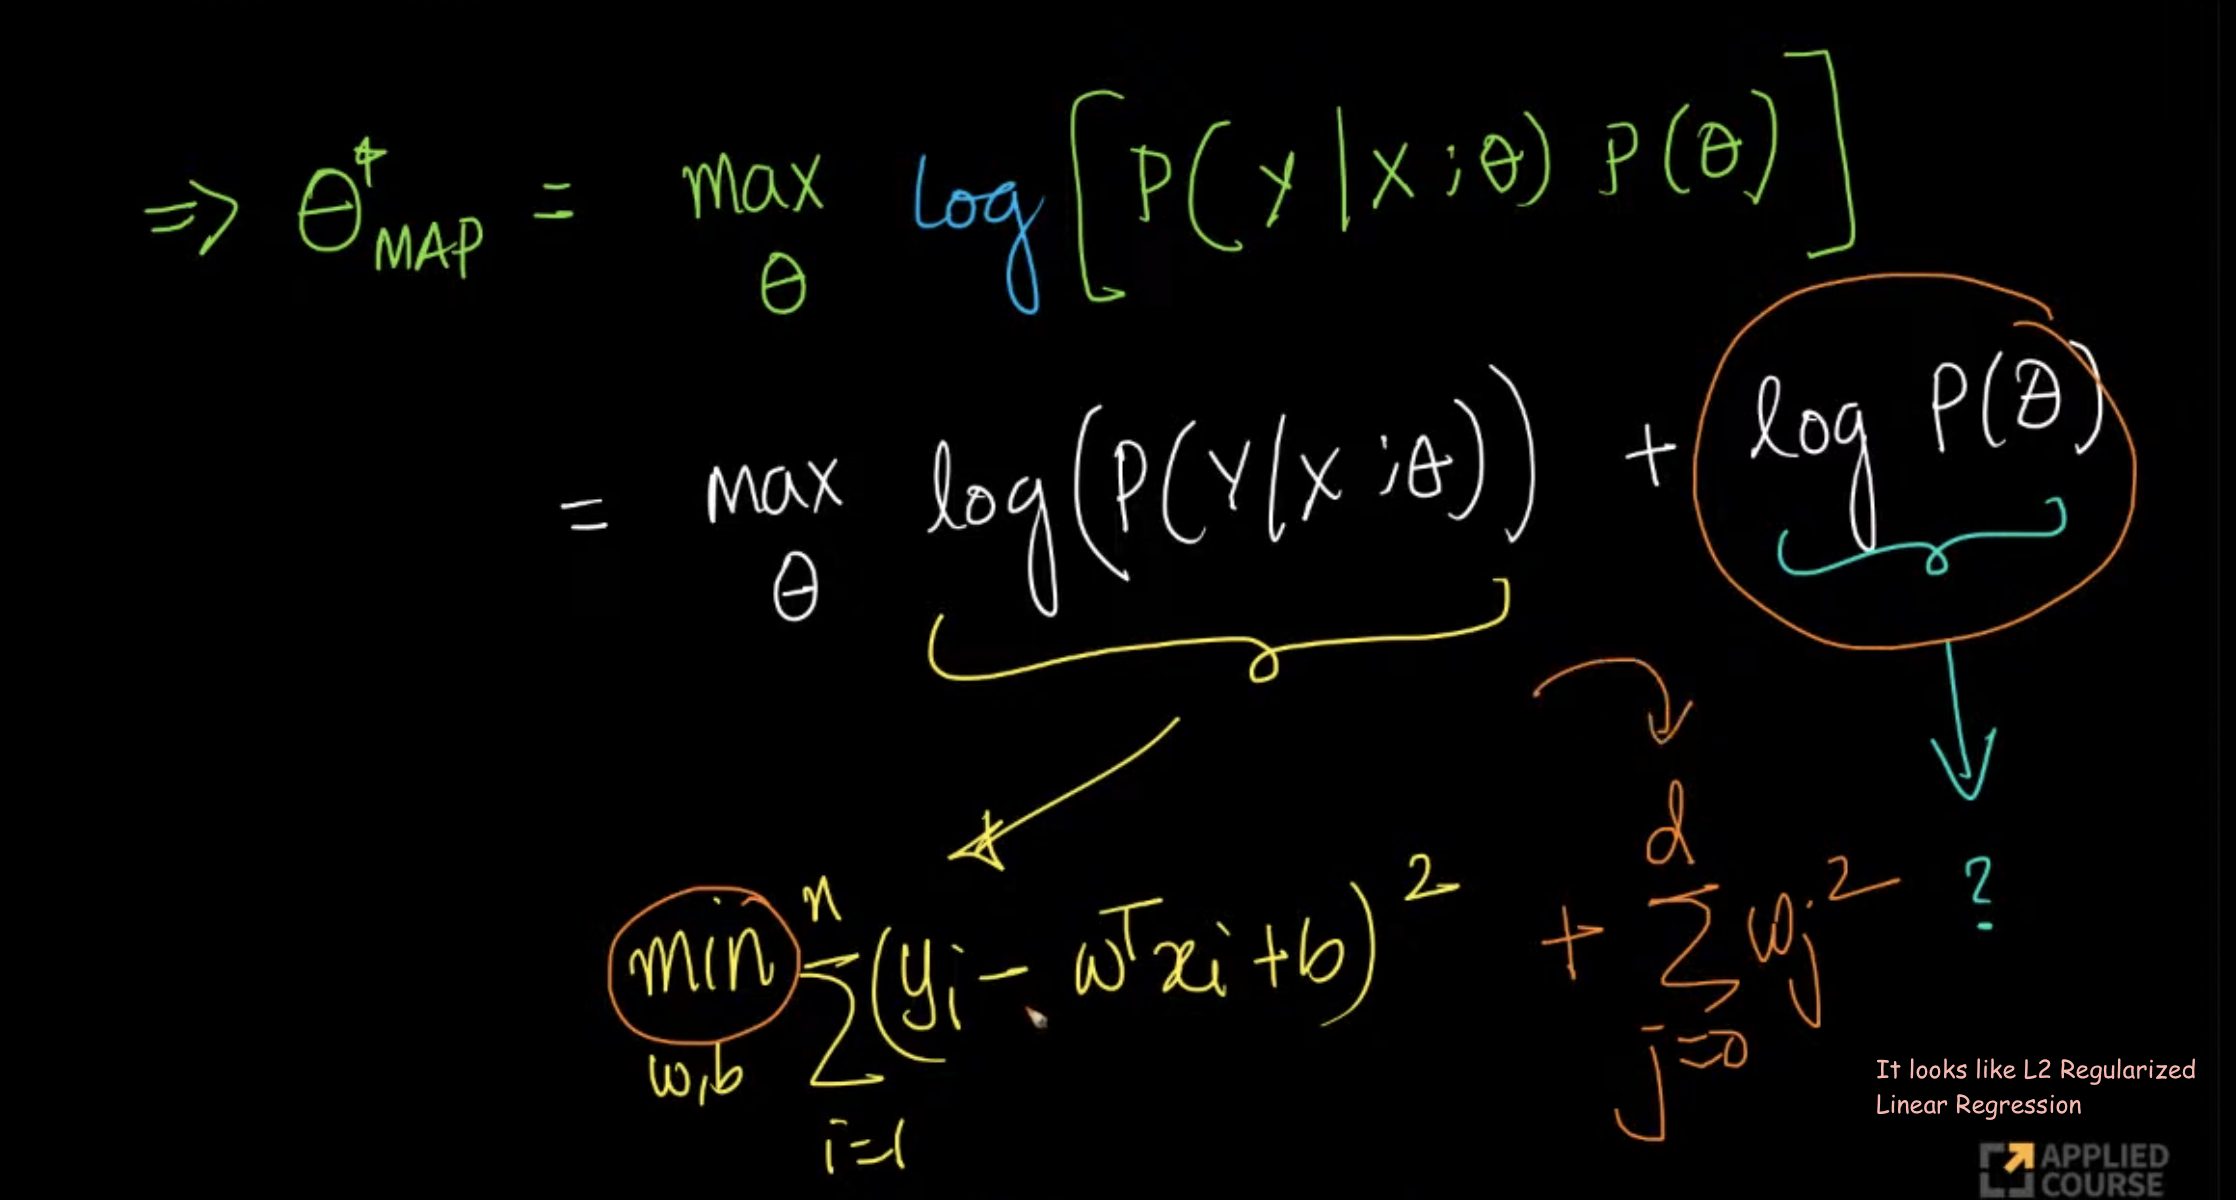 ⇒ θ*MAP = max θ log [ P(Y|X;θ) P(θ) ]
= max θ log(P(Y|X;θ)) + log P(θ)
min w,b n Σ i=1 (yi - wᵀxi + b)² + d Σ j=0 wj² ?
It looks like L2 Regularized
Linear Regression
APPLIED
COURSE